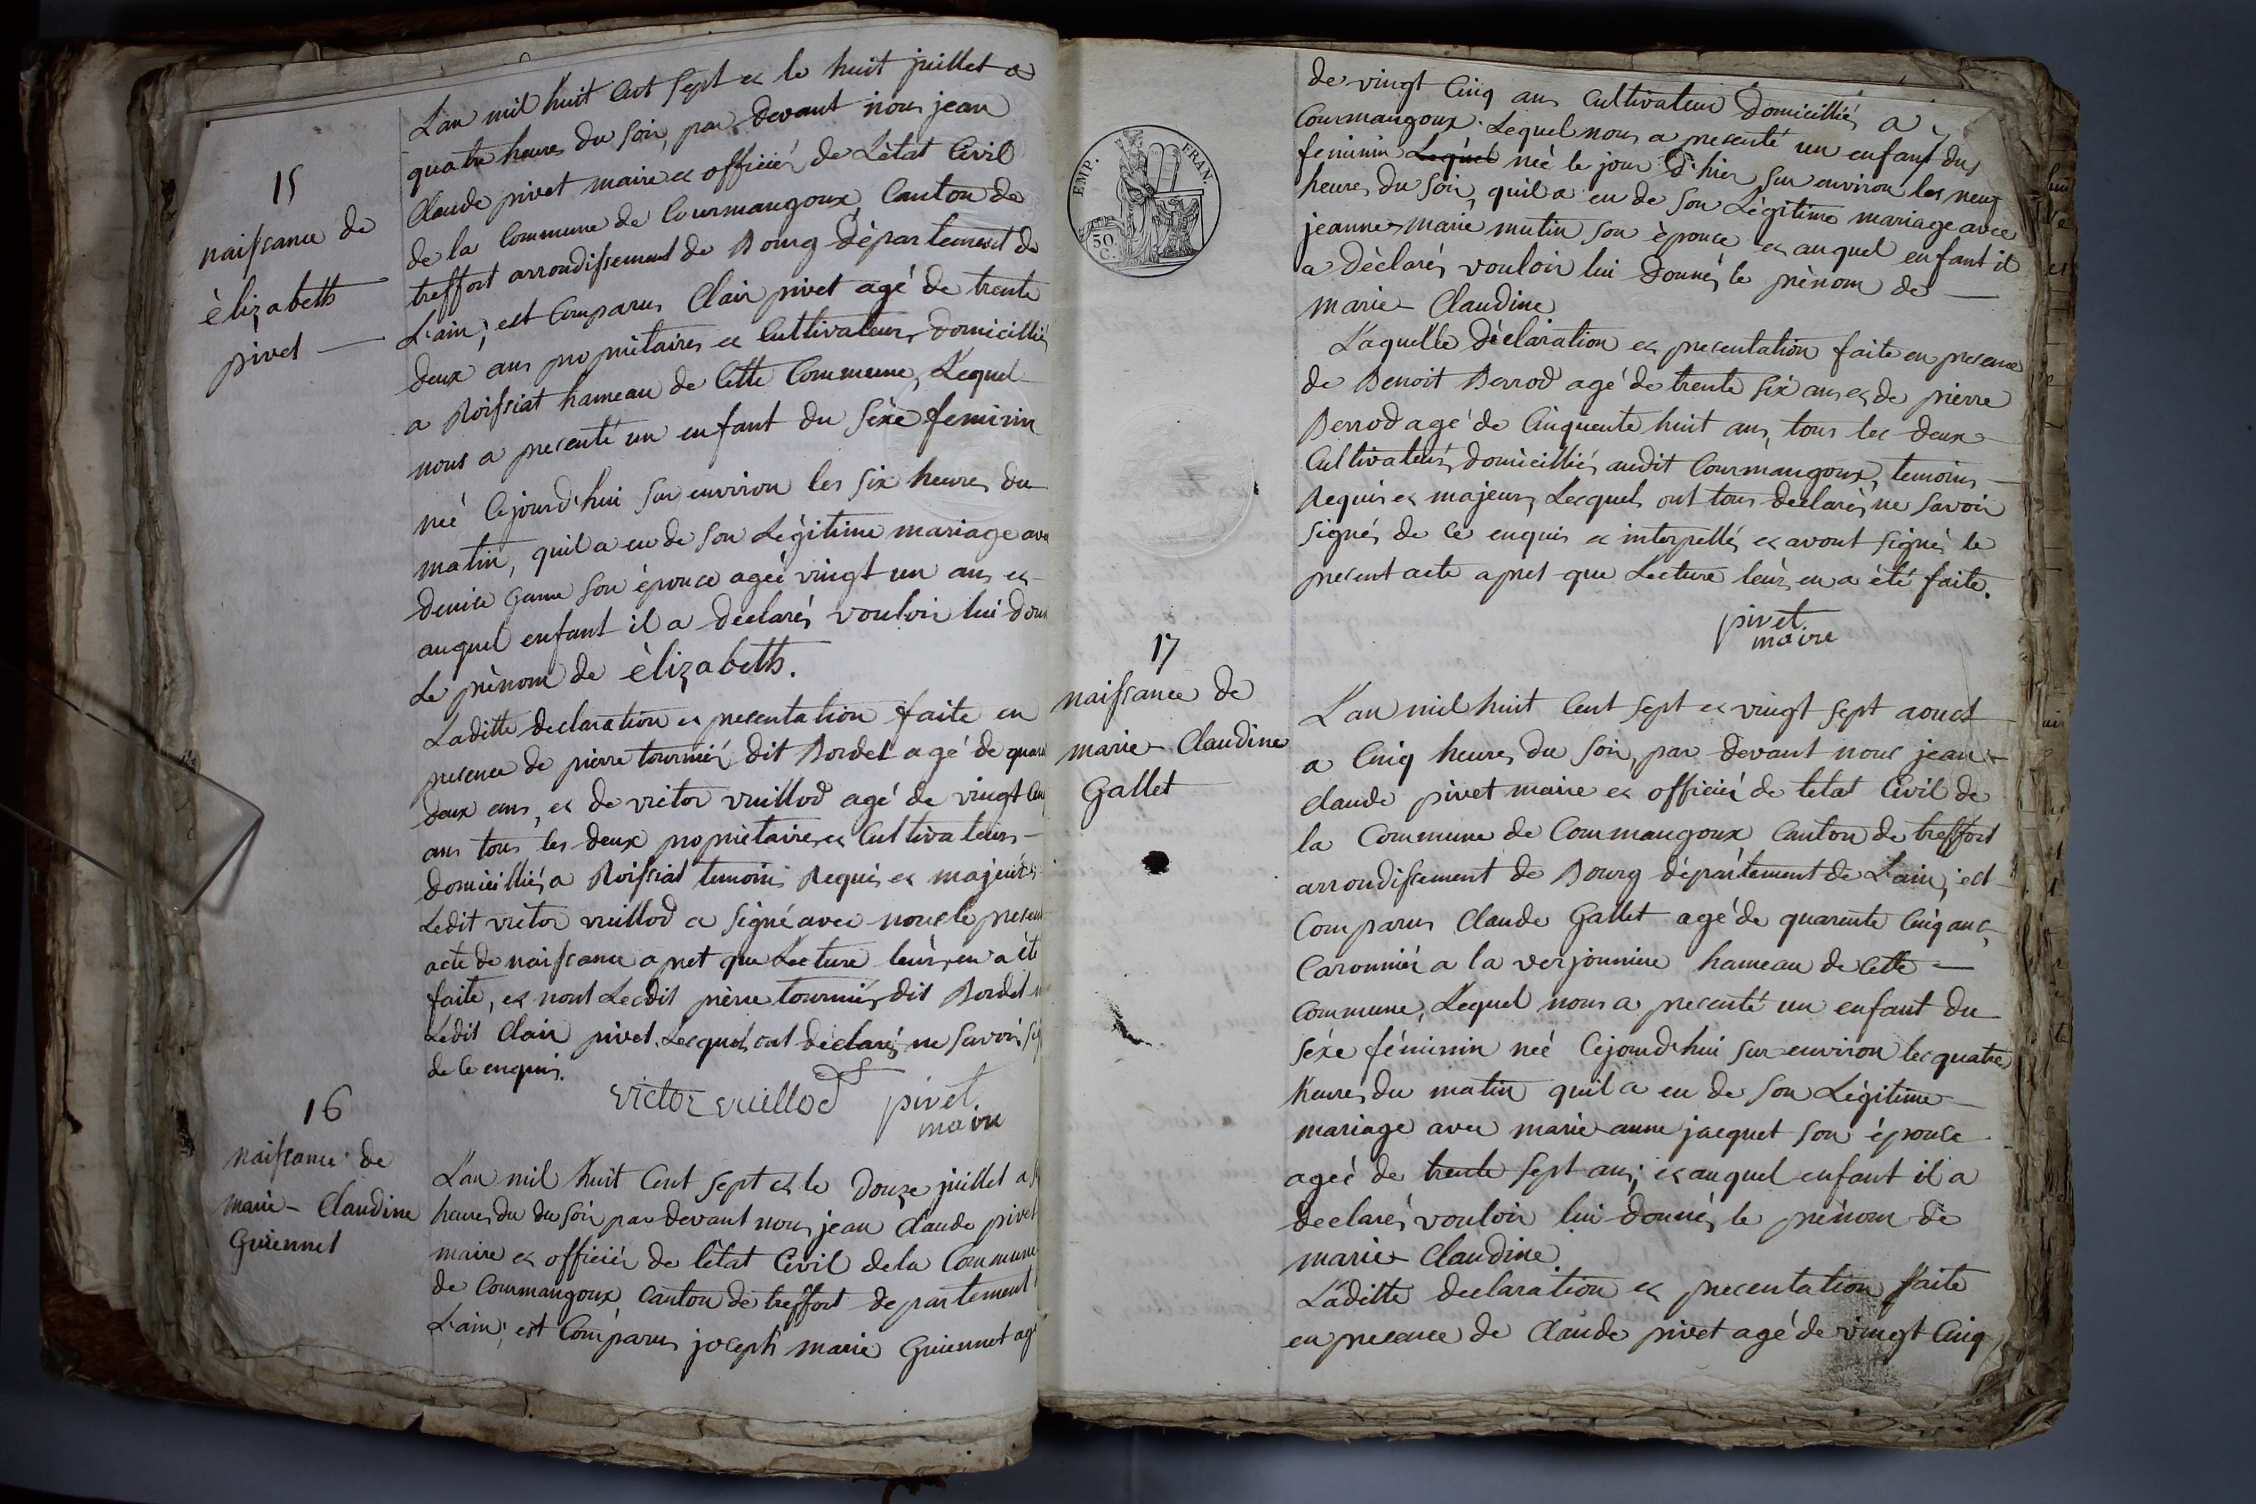 15
naissance de
èlizabeth
pivet
L'an mil huit Cent Sept et le huit juillet a
quatre heures du Soir, par devant nous jean
Claude pivet maire et officiér de L'ètat Civil
de la Commune de Courmangoux Canton de
treffort arrondissement de Bourg département de
L'ain; est Comparus Clair pivet agé de trente
deux ans propriétaires et Cultivateurs domicillié
a Roissiat hameau de Cette Commune, Lequel
nous a presenté un enfant du Séxe feminin
néé Cejourd'hui Sur environ les Six heures du
matin, quil a eu de Son Légitime mariage avec
denise game Son épouce ageé vingt un ans et
auquel enfant il a declarés vouloir lui donn
Le prènom de èlizabeth.
Laditte declaration et presentation faite en
presence de pierre tourniér dit Bordet agé de quara
deux ans, et de victor vuillod agé de vingt Cinq
ans tous les deux propriétaires et Cultivateurs
domicilliés a Roissiat temoins Requis et majeurs
Ledit victor vuillod a Signé avec nous le present
acte de naissance apret que Lecture leurs en a été
faite, et nont Lesdit pierre tourniér dit Bordet ni
Ledit Clair pivet. Lesquels ont déclarés ne Savoir sig
de Ce enquis.
victor vuillod pivet
maire
16
Naissance de
marie - Claudine
Guiennet
L'an mil huit Cent Sept et le douze juillet a
heures du du Soir par devant nous jean Claude pivet
maire et officiér de l'ètat Civil de la Commune
de Courmangoux Canton de treffort departement
L'ain; est Comparus joseph marie Guiennet agé
EMP. FRAN.
50
C.
de vingt Cinq ans Cultivateur Domicilliés a
Courmangoux. Lequel nous a presenté un enfant du
feminin Lequel néé le jour d'hier Sur environ les neuf
heures du Soir, quil a eu de Son Légitime mariage avec
jeanne-marie mutin Son épouce et auquel enfant il
a déclarés vouloir lui Donnés le prènom de
marie - Claudine
Laquelle déclaration et presentation faite en presence
de Benoit Berrod agé de trente Six ans et de pierre
Berrod agé de Cinquente huit ans, tous les deux
Cultivateurs domicilliés audit Courmangoux, temoins
Requis et majeurs, Lesquels ont tous declarés ne Savoir
Signés de Ce enquis et interpellés et avont Signés le
present acte apret que Lecture leurs en a été faite.
pivet
maire
17
naissance de
marie - Claudine
Gallet
L'an mil huit Cent Sept et vingt Sept aoust
a Cinq heures du Soir, par devant nous jean
claude pivet maire et officiér de letat Civil de
la Commune de Courmangoux Canton de treffort
arrondissement de Bourg département de L'ain; est
Comparus Claude Gallet agé de quarente Cinq ans,
Caronniér a la verjonniere hameau de Cette
commune, Lequel nous a presenté un enfant du
Séxe féminin néé Cejourd'hui Sur environ les quatre
heures du matin quil a eu de Son Légitime
mariage avec marie anne jacquet Son épouce
ageé de trente Sept ans; et auquel enfant il a
declarés vouloir lui donnés le prénom de
marie - Claudine.
Laditte declaration et presentation faite
en presence de Claude pivet agé de vingt Cinq